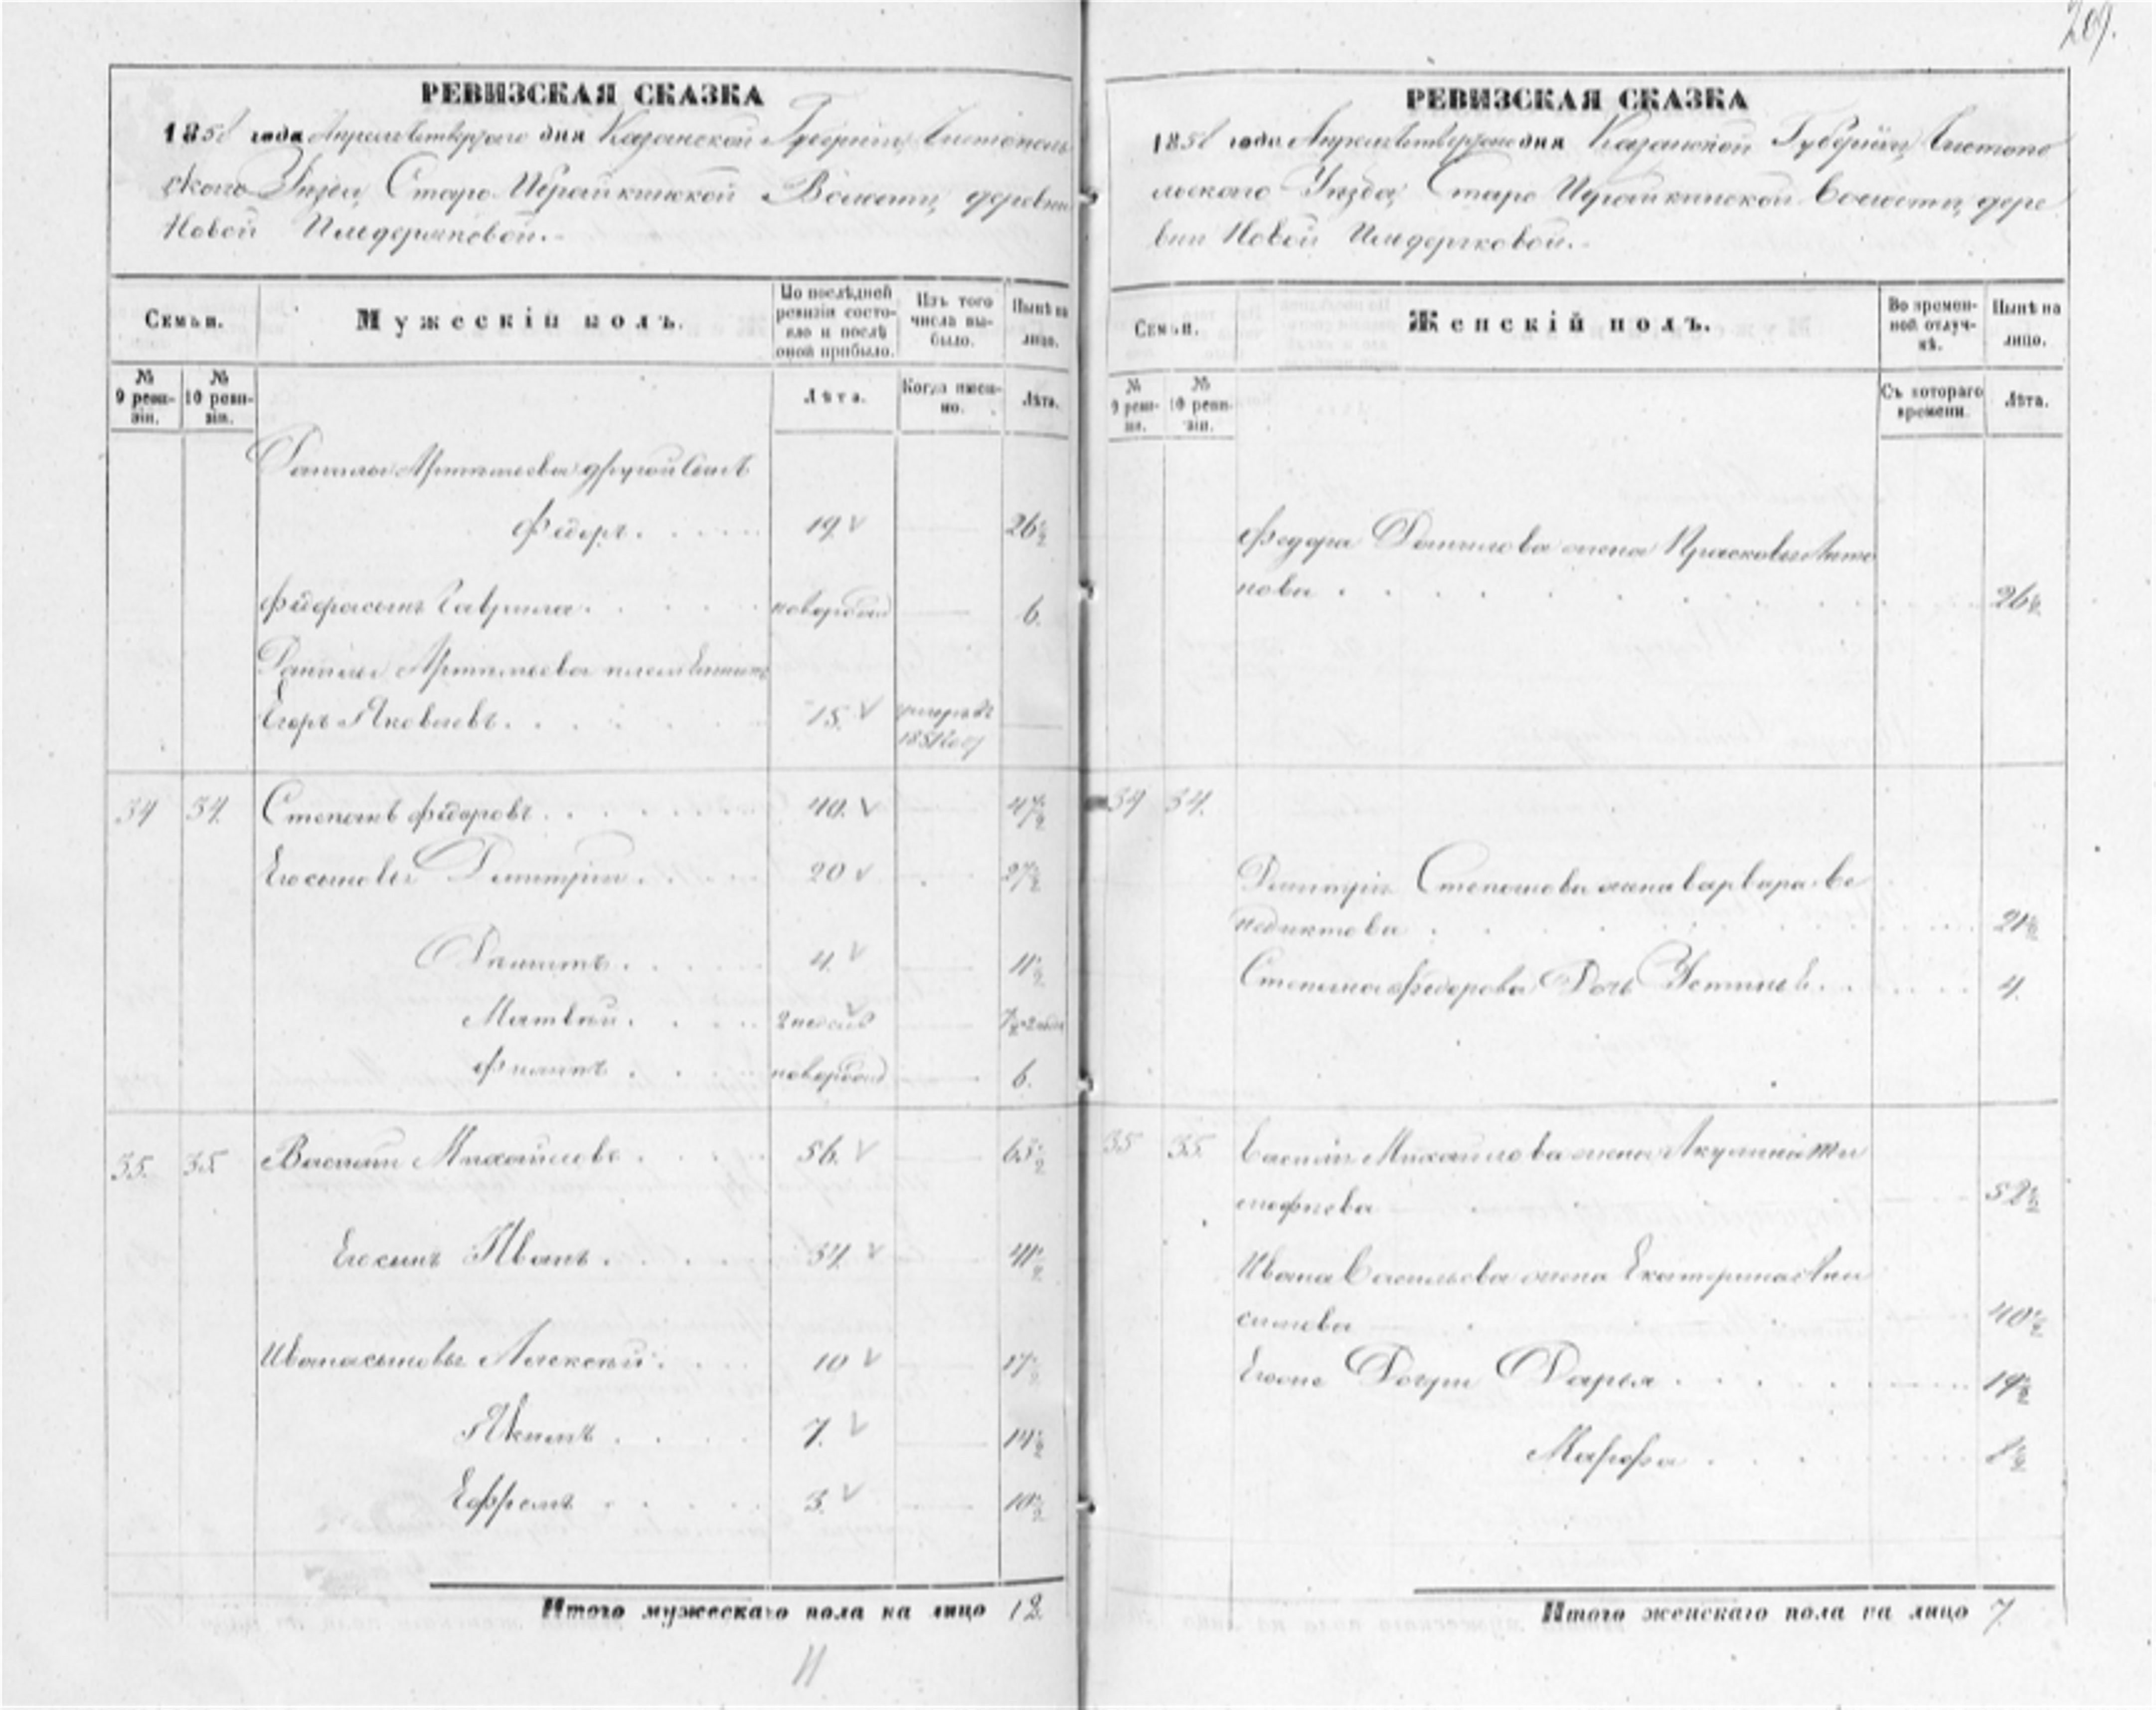 209.
РЕВИЗСКАЯ СКАЗКА
1858 года Апреля четвертаго дня Казанской Губернии, Чистополь
скаго Уезда, Старо Ибрайкинской Волости, деревни
Новой
Семьи.
Мужескій полъ.
По послѣдней ревизіи состояло и послѣ оной прибыло.
Изъ того числа выбыло.
Нынѣ на лицо.
№ 9 ревизіи.
№ 10 ревизіи.
Лѣта.
Когда именно.
Лѣта.
Данилы Артемьева другой сынъ
Федоръ 19 26½
Федора сынъ Гаврила новорожд 6.
Данилы Артемьева племянникъ
Егоръ Яковлевъ 15. умеръ въ 1851 году
34 34. Степанъ Федоровъ 40. 47½
Его сыновья Димитрій 20 27½
4. 11½
Матвей 2 недель
Филипъ новорожд 6.
35. 35 Василій Михайловъ 56. 63½
Его сынъ Иванъ 34. 41½
Ивана сыновья Алексей 10 17½
Якимъ 7. 14½
Ефремъ 3. 10½
Итого мужескаго пола на лицо 12
11
РЕВИЗСКАЯ СКАЗКА
1858 года Апреля четвертаго дня Казанской Губерніи, Чистопо
льскаго Уезда, Старо Ибрайкинской Волости, дере
вни Новой
Семьи.
Женскій полъ.
Во временной отлучкѣ.
Нынѣ на лицо.
№ 9 ревизіи.
№ 10 ревизіи.
Съ котораго времени.
Лѣта.
Федора Данилова жена Прасковья Анто
нова 26½
34 34.
Димитрія Степанова жена Варвара Ве
недиктова 21½
Степана Федорова Дочь Устинья 4.
35 35. Василія Михайлова жена Акулина Ти
мофеева 52½
Ивана Васильева жена Екатерина Ани
симова 40½
Его Дочери Дарья 19½
Марфа 8½
Итого женскаго пола на лицо 7